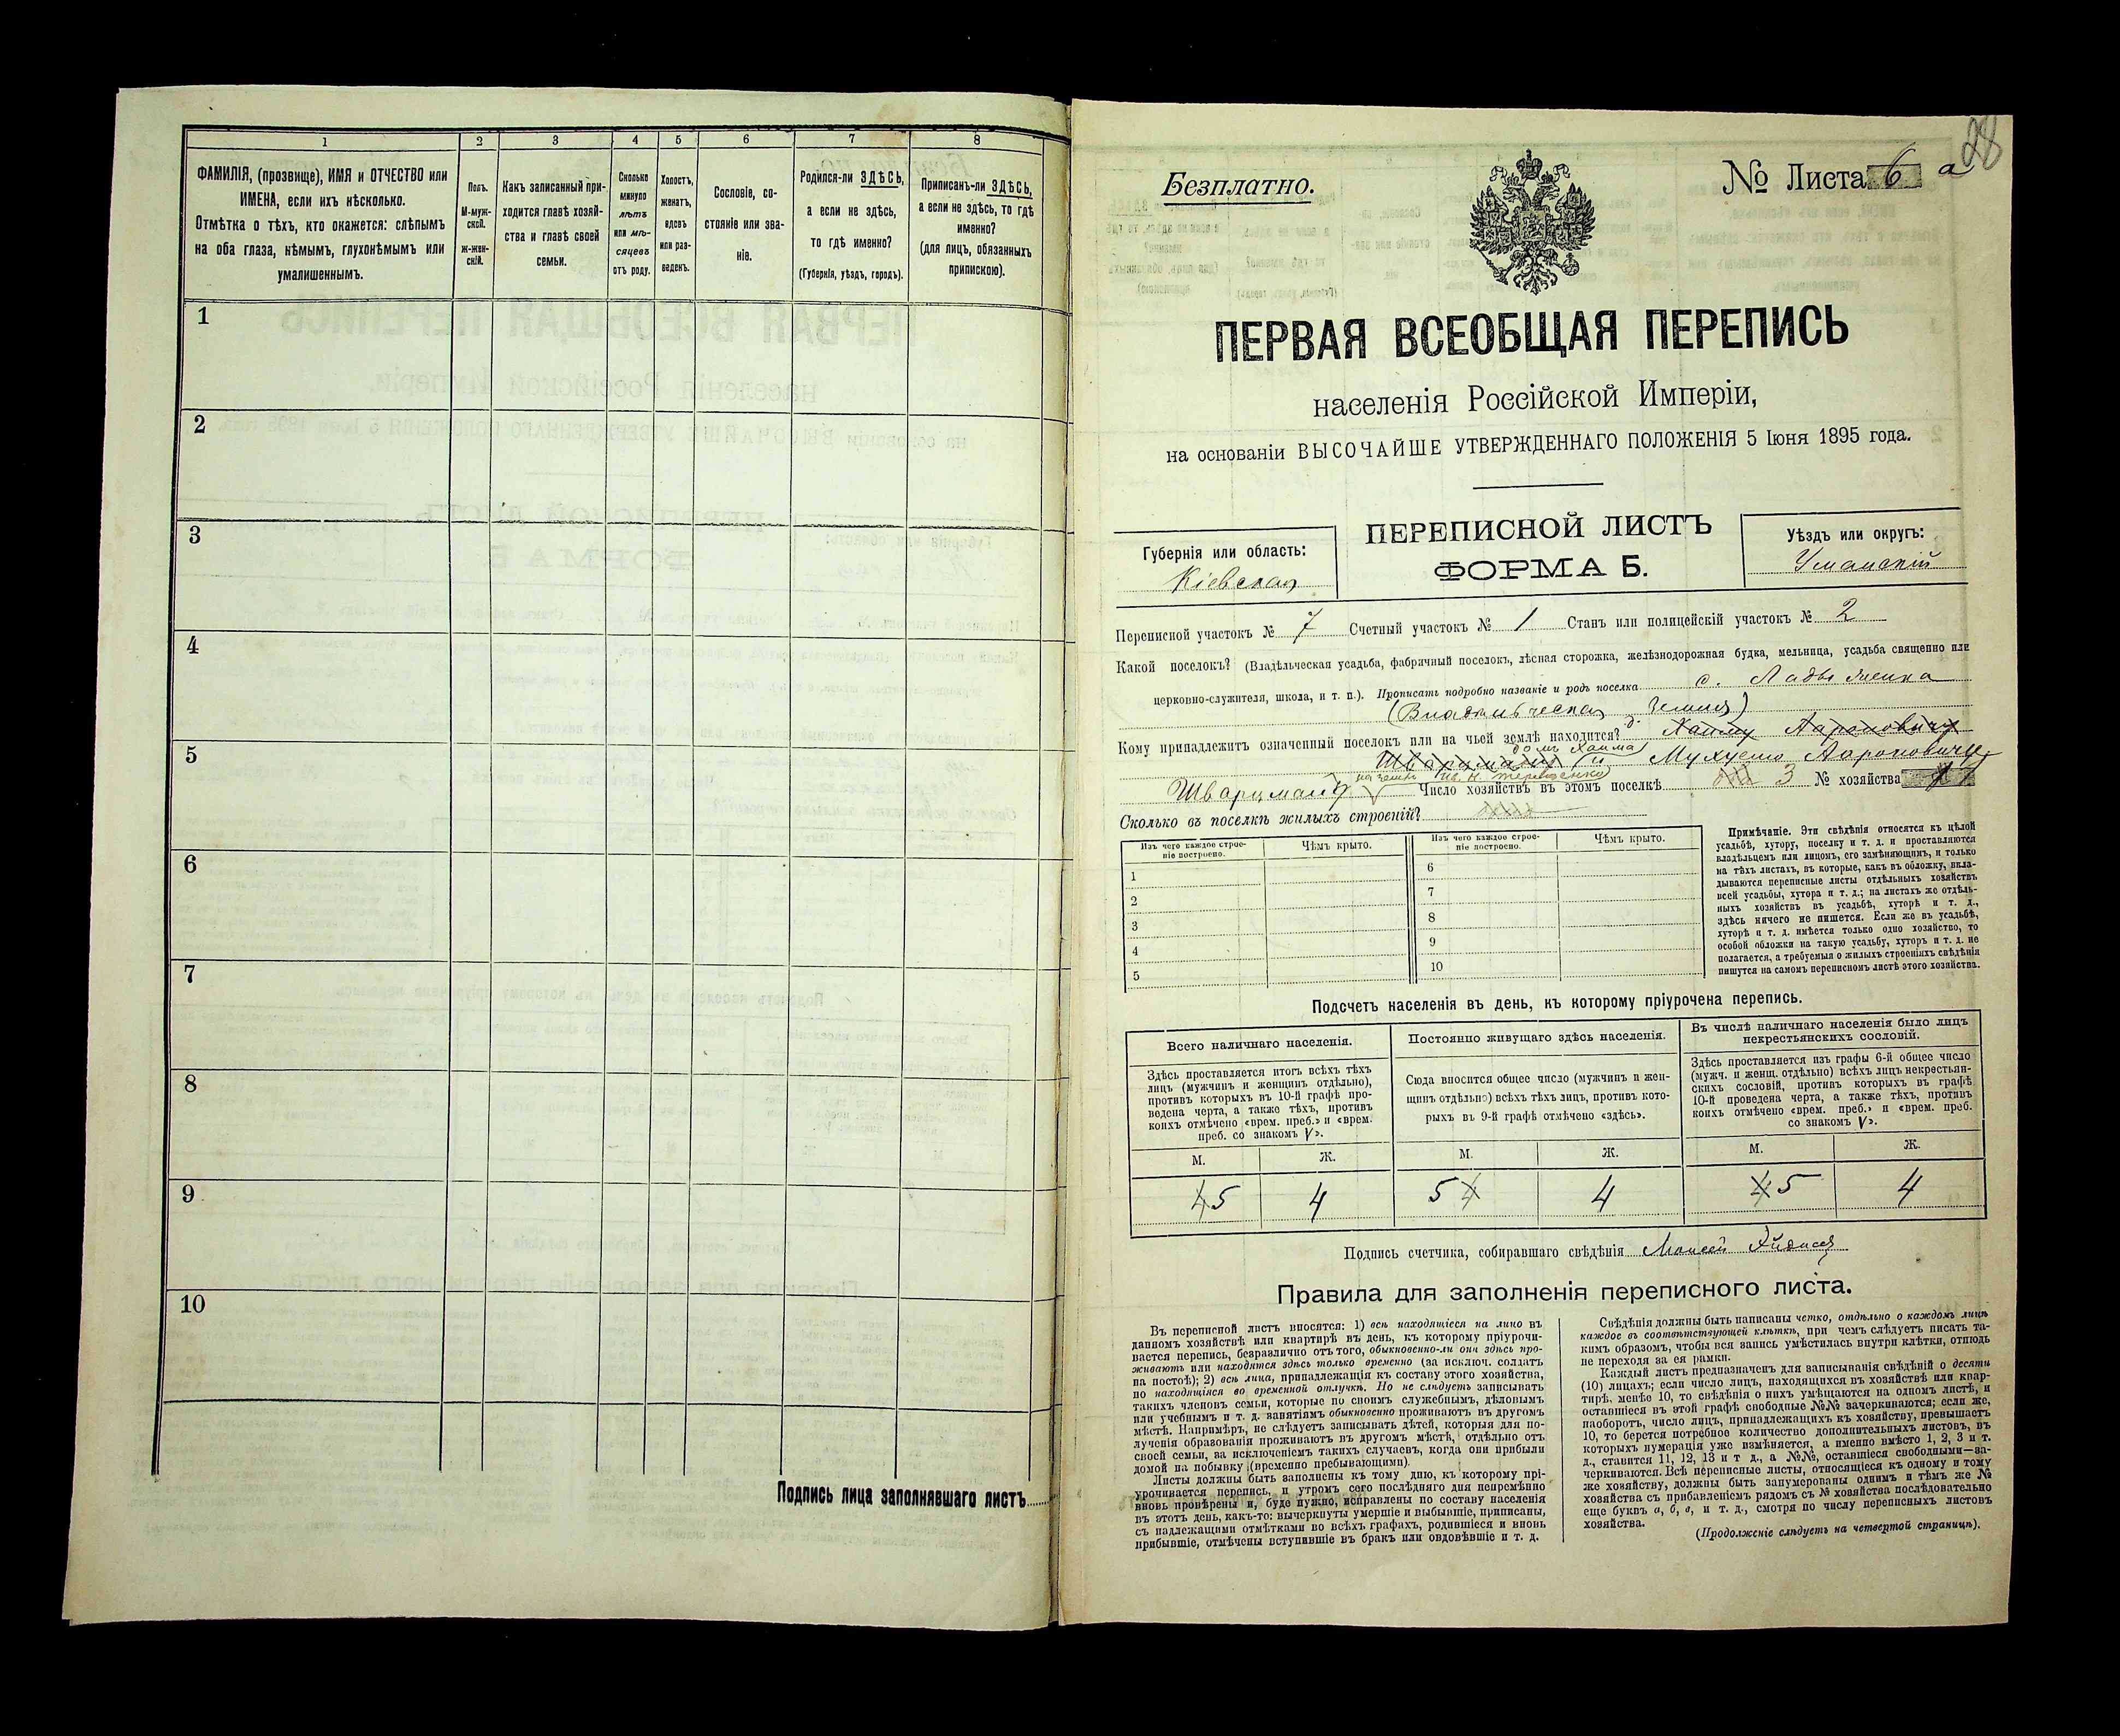 1
2
3
4
5
6
7
8
ФАМИЛІЯ, (прозвище), ИМЯ и ОТЧЕСТВО или
ИМЕНА, если ихъ нѣсколько.
Отмѣтка о тѣхъ, кто окажется: слѣпымъ
на оба глаза, нѣмымъ, глухонѣмымъ или
умалишеннымъ.
Полъ.
М-муж-
ской.
Ж-жен-
скій.
Какъ записанный при-
ходится главѣ хозяй-
ства и главѣ своей
семьи.
Сколько
минуло
лѣтъ
или мѣ-
сяцевъ
отъ роду.
Холостъ,
женатъ,
вдовъ
или раз-
веденъ.
Сословіе, со-
стояніе или зва-
ніе.
Родился-ли ЗДѢСЬ,
а если не здѣсь,
то гдѣ именно?
(Губернія, уѣздъ, городъ).
Приписанъ-ли ЗДѢСЬ,
а если не здѣсь, то гдѣ
именно?
(для лицъ, обязанныхъ
припискою).
1
2
3
4
5
6
7
8
9
10
Подпись лица заполнявшаго листъ
28
Безплатно.
№ Листа 6 а
ПЕРВАЯ ВСЕОБЩАЯ ПЕРЕПИСЬ
населенія Россійской Имперіи,
на основаніи ВЫСОЧАЙШЕ УТВЕРЖДЕННАГО ПОЛОЖЕНІЯ 5 Іюня 1895 года.
Губернія или область:
Кіевская
ПЕРЕПИСНОЙ ЛИСТЪ
ФОРМА Б.
Уѣздъ или округъ:
Уманскій
Переписной участокъ № 7 Счетный участокъ № 1 Станъ или полицейскій участокъ № 2
Какой поселокъ? (Владѣльческая усадьба, фабричный поселокъ, лѣсная сторожка, желѣзнодорожная будка, мельница, усадьба священно или
церковно-служителя, школа, и т. п.). Прописать подробно названіе и родъ поселка с. Ладыженка
(Владѣльческая земля)
Кому принадлежитъ означенный поселокъ или на чьей землѣ находится? Хаиму Ароновичу
домъ Хаима и Ароновичу
Шварцману Число хозяйствъ въ этомъ поселкѣ 3 № хозяйства
Сколько въ поселкѣ жилыхъ строеній?
Изъ чего каждое строе-
ніе построено.
Чѣмъ крыто.
Изъ чего каждое строе-
ніе построено.
Чѣмъ крыто.
1
2
3
4
5
6
7
8
9
10
Примѣчаніе. Эти свѣдѣнія относятся къ цѣлой
усадьбѣ, хутору, поселку и т. д. и проставляются
владѣльцемъ или лицомъ, его замѣняющимъ, и только
на тѣхъ листахъ, въ которые, какъ въ обложку, вкла-
дываются переписные листы отдѣльныхъ хозяйствъ
всей усадьбы, хутора и т. д.; на листахъ же отдѣль-
ныхъ хозяйствъ въ усадьбѣ, хуторѣ и т. д.,
здѣсь ничего не пишется. Если же въ усадьбѣ,
хуторѣ и т. д. имѣется только одно хозяйство, то
особой обложки на такую усадьбу, хуторъ и т. д. не
полагается, а требуемыя о жилыхъ строеніяхъ свѣдѣнія
пишутся на самомъ переписномъ листѣ этого хозяйства.
Подсчетъ населенія въ день, къ которому пріурочена перепись.
Всего наличнаго населенія.
Постоянно живущаго здѣсь населенія.
Въ числѣ наличнаго населенія было лицъ
некрестьянскихъ сословій.
Здѣсь проставляется итогъ всѣхъ тѣхъ
лицъ (мужчинъ и женщинъ отдѣльно),
противъ которыхъ въ 10-й графѣ про-
ведена черта, а также тѣхъ, противъ
коихъ отмѣчено «врем. преб.» и «врем.
преб. со знакомъ V».
Сюда вносится общее число (мужчинъ и жен-
щинъ отдѣльно) всѣхъ тѣхъ лицъ, противъ кото-
рыхъ въ 9-й графѣ отмѣчено «здѣсь».
Здѣсь проставляется изъ графы 6-й общее число
(мужч. и женщ. отдѣльно) всѣхъ лицъ некрестьян-
скихъ сословій, противъ которыхъ въ графѣ
10-й проведена черта, а также тѣхъ, противъ
коихъ отмѣчено «врем. преб.» и «врем. преб.
со знакомъ V».
М. Ж. М. Ж. М. Ж.
4 5 4 5 4 4 4 5 4
Подпись счетчика, собиравшаго свѣдѣнія Моисей
Правила для заполненія переписного листа.
Въ переписной листъ вносятся: 1) всѣ находящіеся на лицо въ
данномъ хозяйствѣ или квартирѣ въ день, къ которому пріурочи-
вается перепись, безразлично отъ того, обыкновенно-ли они здѣсь про-
живаютъ или находятся здѣсь только временно (за исключ. солдатъ
на постоѣ); 2) всѣ лица, принадлежащія къ составу этого хозяйства,
но находящіяся во временной отлучкѣ. Но не слѣдуетъ записывать
такихъ членовъ семьи, которые по своимъ служебнымъ, дѣловымъ
или учебнымъ и т. д. занятіямъ обыкновенно проживаютъ въ другомъ
мѣстѣ. Напримѣръ, не слѣдуетъ записывать дѣтей, которыя для по-
лученія образованія проживаютъ въ другомъ мѣстѣ, отдѣльно отъ
своей семьи, за исключеніемъ такихъ случаевъ, когда они прибыли
домой на побывку (временно пребывающими).
Листы должны быть заполнены къ тому дню, къ которому прі-
урочивается перепись, и утромъ сего послѣдняго дня непремѣнно
вновь провѣрены и, буде нужно, исправлены по составу населенія
въ этотъ день, какъ-то: вычеркнуты умершіе и выбывшіе, приписаны,
съ надлежащими отмѣтками во всѣхъ графахъ, родившіеся и вновь
прибывшіе, отмѣчены вступившіе въ бракъ или овдовѣвшіе и т. д.
Свѣдѣнія должны быть написаны четко, отдѣльно о каждомъ лицѣ
каждое въ соотвѣтствующей клѣткѣ, при чемъ слѣдуетъ писать та-
кимъ образомъ, чтобы вся запись умѣстилась внутри клѣтки, отнюдь
не переходя за ея рамки.
Каждый листъ предназначенъ для записыванія свѣдѣній о десяти
(10) лицахъ; если число лицъ, находящихся въ хозяйствѣ или квар-
тирѣ, менѣе 10, то свѣдѣнія о нихъ умѣщаются на одномъ листѣ, и
оставшіеся въ этой графѣ свободные №№ зачеркиваются; если же,
наоборотъ, число лицъ, принадлежащихъ къ хозяйству, превышаетъ
10, то берется потребное количество дополнительныхъ листовъ, въ
которыхъ нумерація уже измѣняется, а именно вмѣсто 1, 2, 3 и т.
д., ставится 11, 12, 13 и т д., а №№, оставшіеся свободными—за-
черкиваются. Всѣ переписные листы, относящіеся къ одному и тому
же хозяйству, должны быть занумерованы однимъ и тѣмъ же №
хозяйства съ прибавленіемъ рядомъ съ № хозяйства послѣдовательно
еще буквъ а, б, в, и т. д., смотря по числу переписныхъ листовъ
хозяйства.
(Продолженіе слѣдуетъ на четвертой страницѣ).